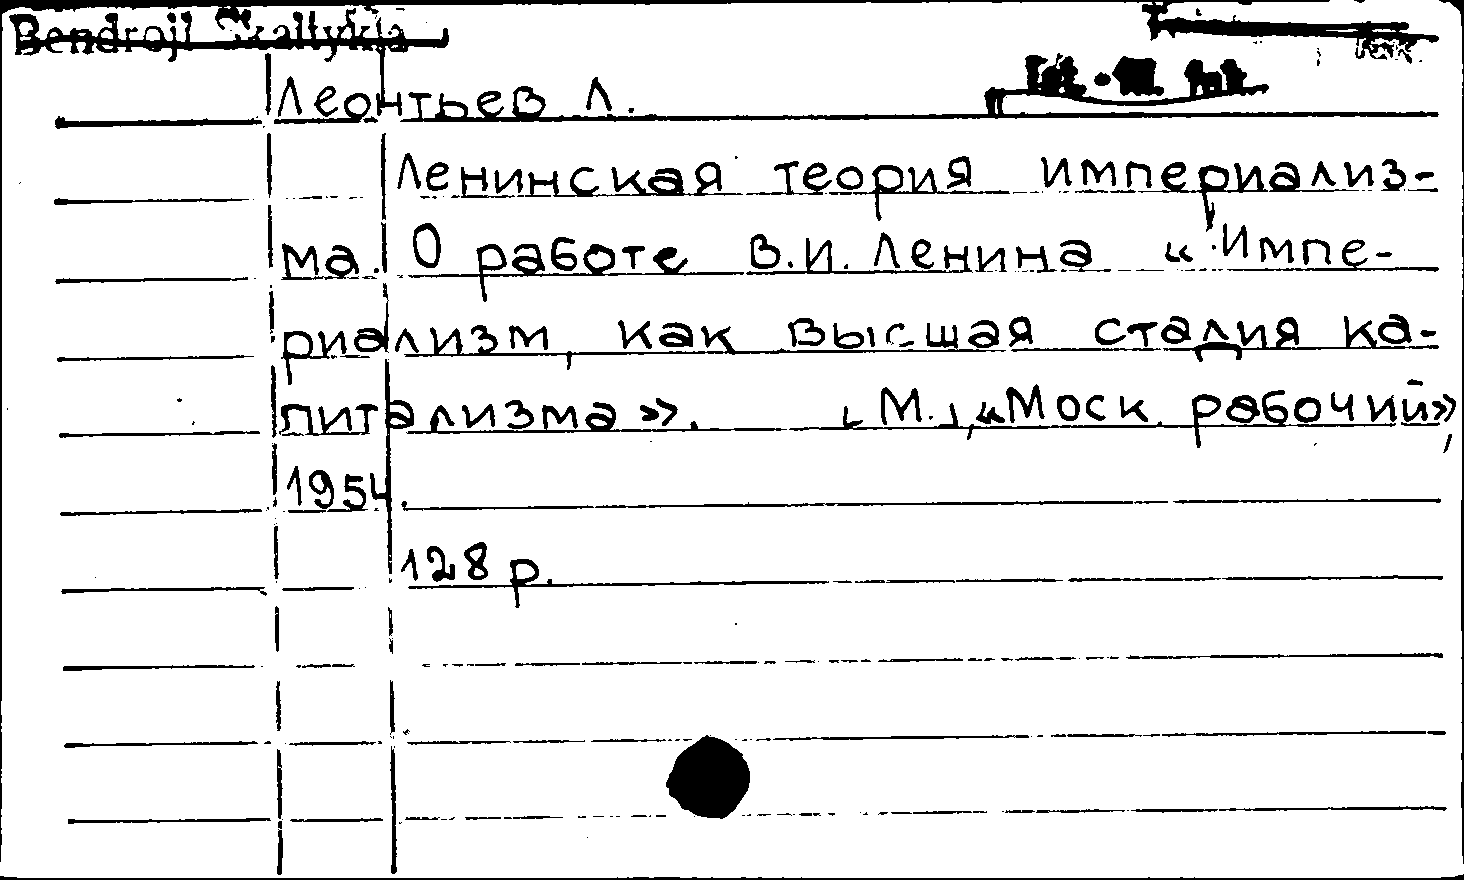 Bendroji Skaitykla
Леонтьев Л.
Ленинская теория империализ-
ма. О работе В.И. Ленина «Импе-
риализм, как высшая стадия ка-
питализма». [М.], «Моск. рабочий»,
1954.
128 p.